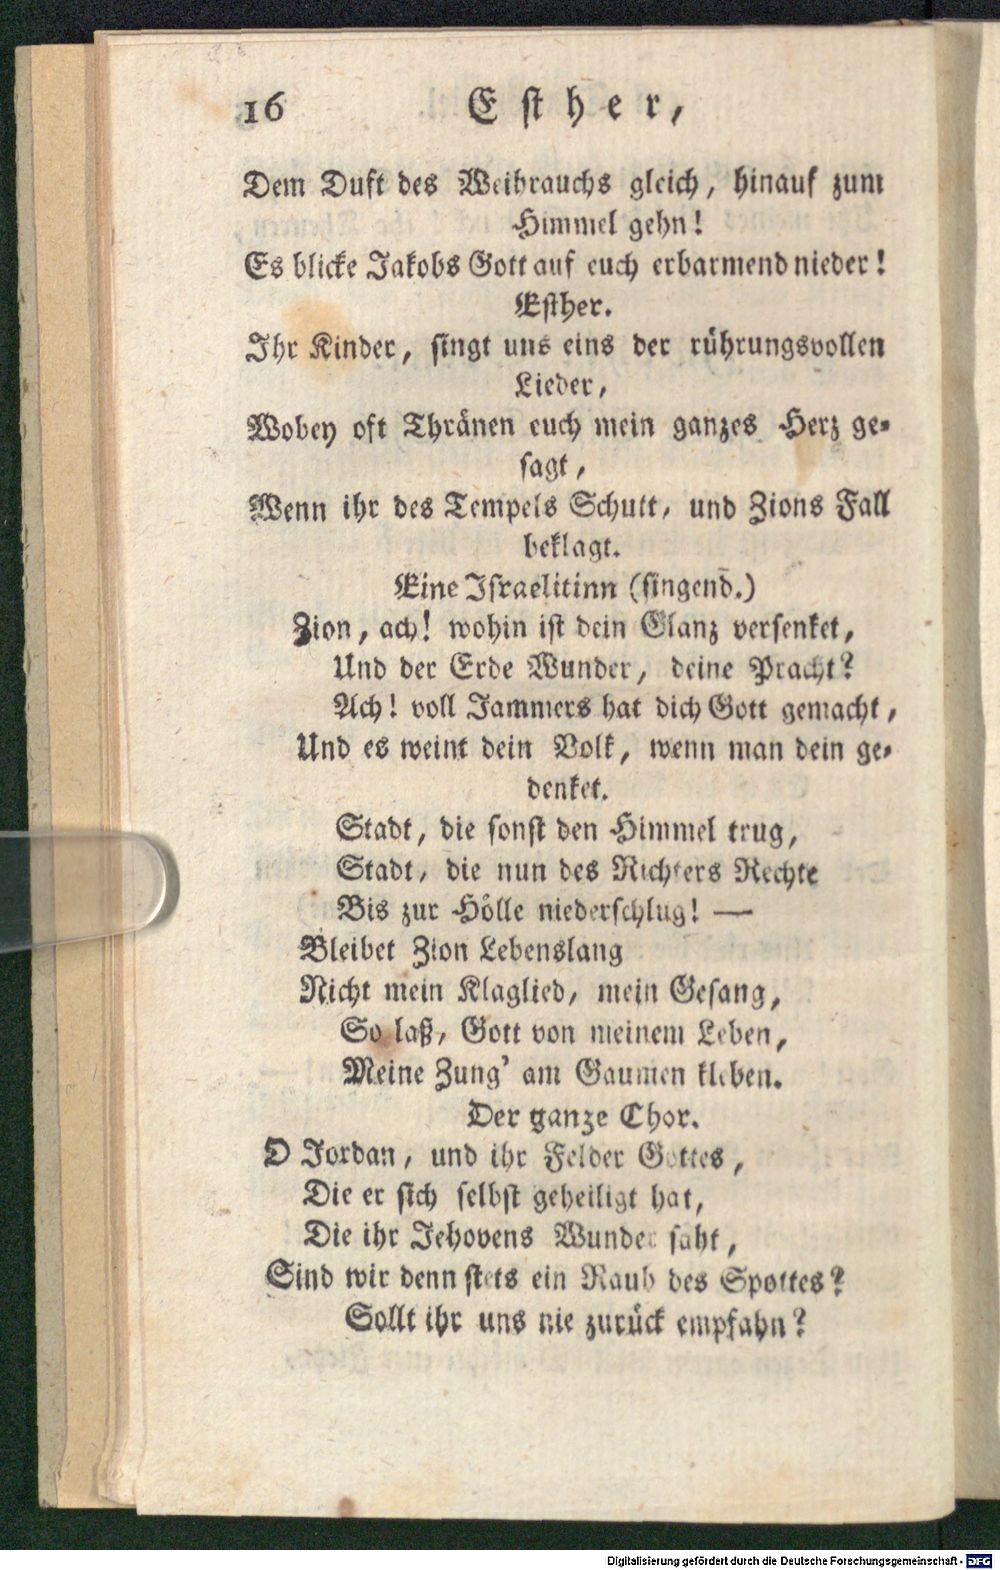 16 Esther,
Dem Duft des Weihrauchs gleich, hinauf zum
Himmel gehn!
Es blicke Jakobs Gott auf euch erbarmend nieder!
Esther.
Ihr Kinder, singt uns eins der rührungsvollen
Lieder,
Wobey oft Thränen euch mein ganzes Herz ge-
sagt,
Wenn ihr des Tempels Schutt, und Zions Fall
beklagt.
Eine Israelitinn (singend.)
Zion, ach! wohin ist dein Glanz versenket,
Und der Erde Wunder, deine Pracht?
Ach! voll Jammers hat dich Gott gemacht,
Und es weint dein Volk, wenn man dein ge-
denket.
Stadt, die sonst den Himmel trug,
Stadt, die nun des Richters Rechte
Bis zur Hölle niederschlug! —
Bleibet Zion Lebenslang
Nicht mein Klaglied, mein Gesang,
So laß, Gott von meinem Leben,
Meine Zung' am Gaumen kleben.
Der ganze Chor.
O Jordan, und ihr Felder Gottes,
Die er sich selbst geheiligt hat,
Die ihr Jehovens Wunder saht,
Sind wir denn stets ein Raub des Spottes?
Sollt ihr uns nie zurück empfahn?
Digitalisierung gefördert durch die Deutsche Forschungsgemeinschaft - DFG